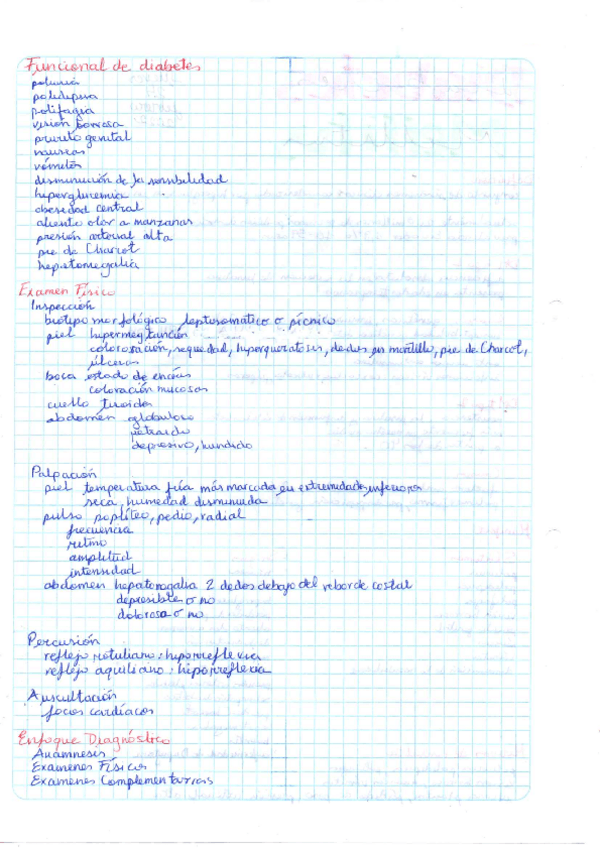 Funcional de diabetes
poliuria
polidipsia
polifagia
visión borrosa
prurito genital
nauseas
vómitos
disminución de la sensibilidad
hiperglucemia
obesidad central
aliento olor a manzanas
presión arterial alta
pie de Charcot
hepatomegalia
Examen Físico
Inspección
biotipo morfológico leptosomatico o pícnico
piel
colorosación, sequedad, hiperqueratosis, dedos en martillo, pie de Charcot,
úlceras
boca estado de encías
coloración mucosas
cuello tiroides
abdomen globuloso
retraido
depresivo, hundido
Palpación
piel temperatura fría más marcada en extremidades inferiores
seca, humedad disminuida
pulso poplíteo, pedio, radial
frecuencia
ritmo
amplitud
intensidad
abdomen hepatomegalia 2 dedos debajo del reborde costal
depresible o no
dolorosa o no
Percusión
reflejo rotuliano: hiporreflexia
reflejo aquiliano: hiporreflexia
Auscultación
focos cardíacos
Enfoque Diagnóstico
Anamnesis
Examenes Físicos
Examenes Complementarios